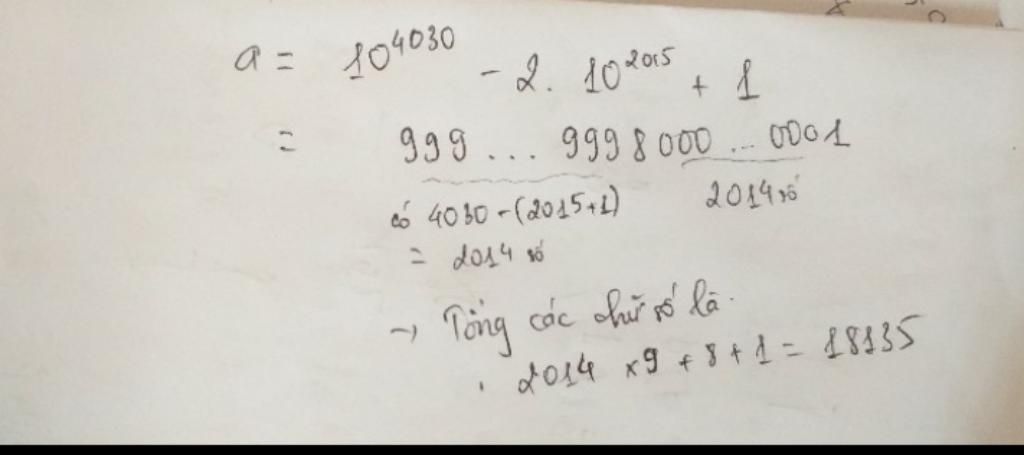 a = 10^4030 - 2. 10^2015 + 1
= 999 ... 9998000 ... 0001
có 4030 - (2015+1) 2014 số
= 2014 số
→ Tổng các chữ số là.
. 2014 x 9 + 8 + 1 = 18135